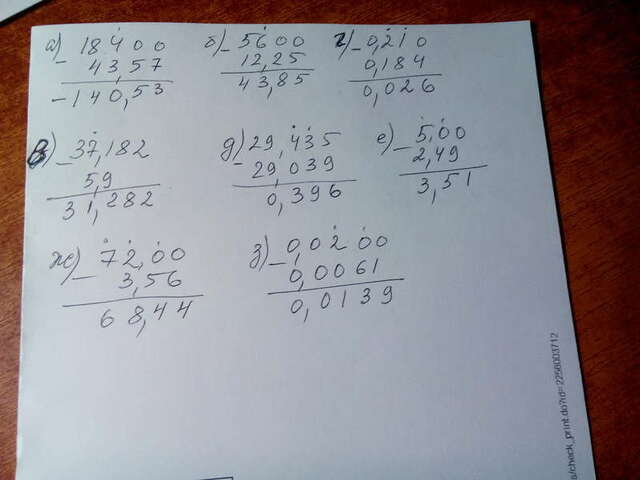 а) 18400
- 43,57
-140,53
б) - 5600
12,25
43,85
г) - 0,210
0,184
0,026
в) - 37,182
5,9
31,282
д) - 29,435
29,039
0,396
е) - 5,00
2,49
3,51
ж) - 72,00
3,56
68,44
з) - 0,0200
0,0061
0,0139
a/check_print.do?id=2258003712